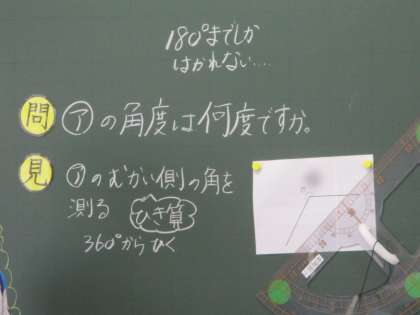 180°までしか
はかれない....
問 ㋐の角度は何度ですか。
見 ㋐のむかい側の角を
測る ひき算
360°からひく